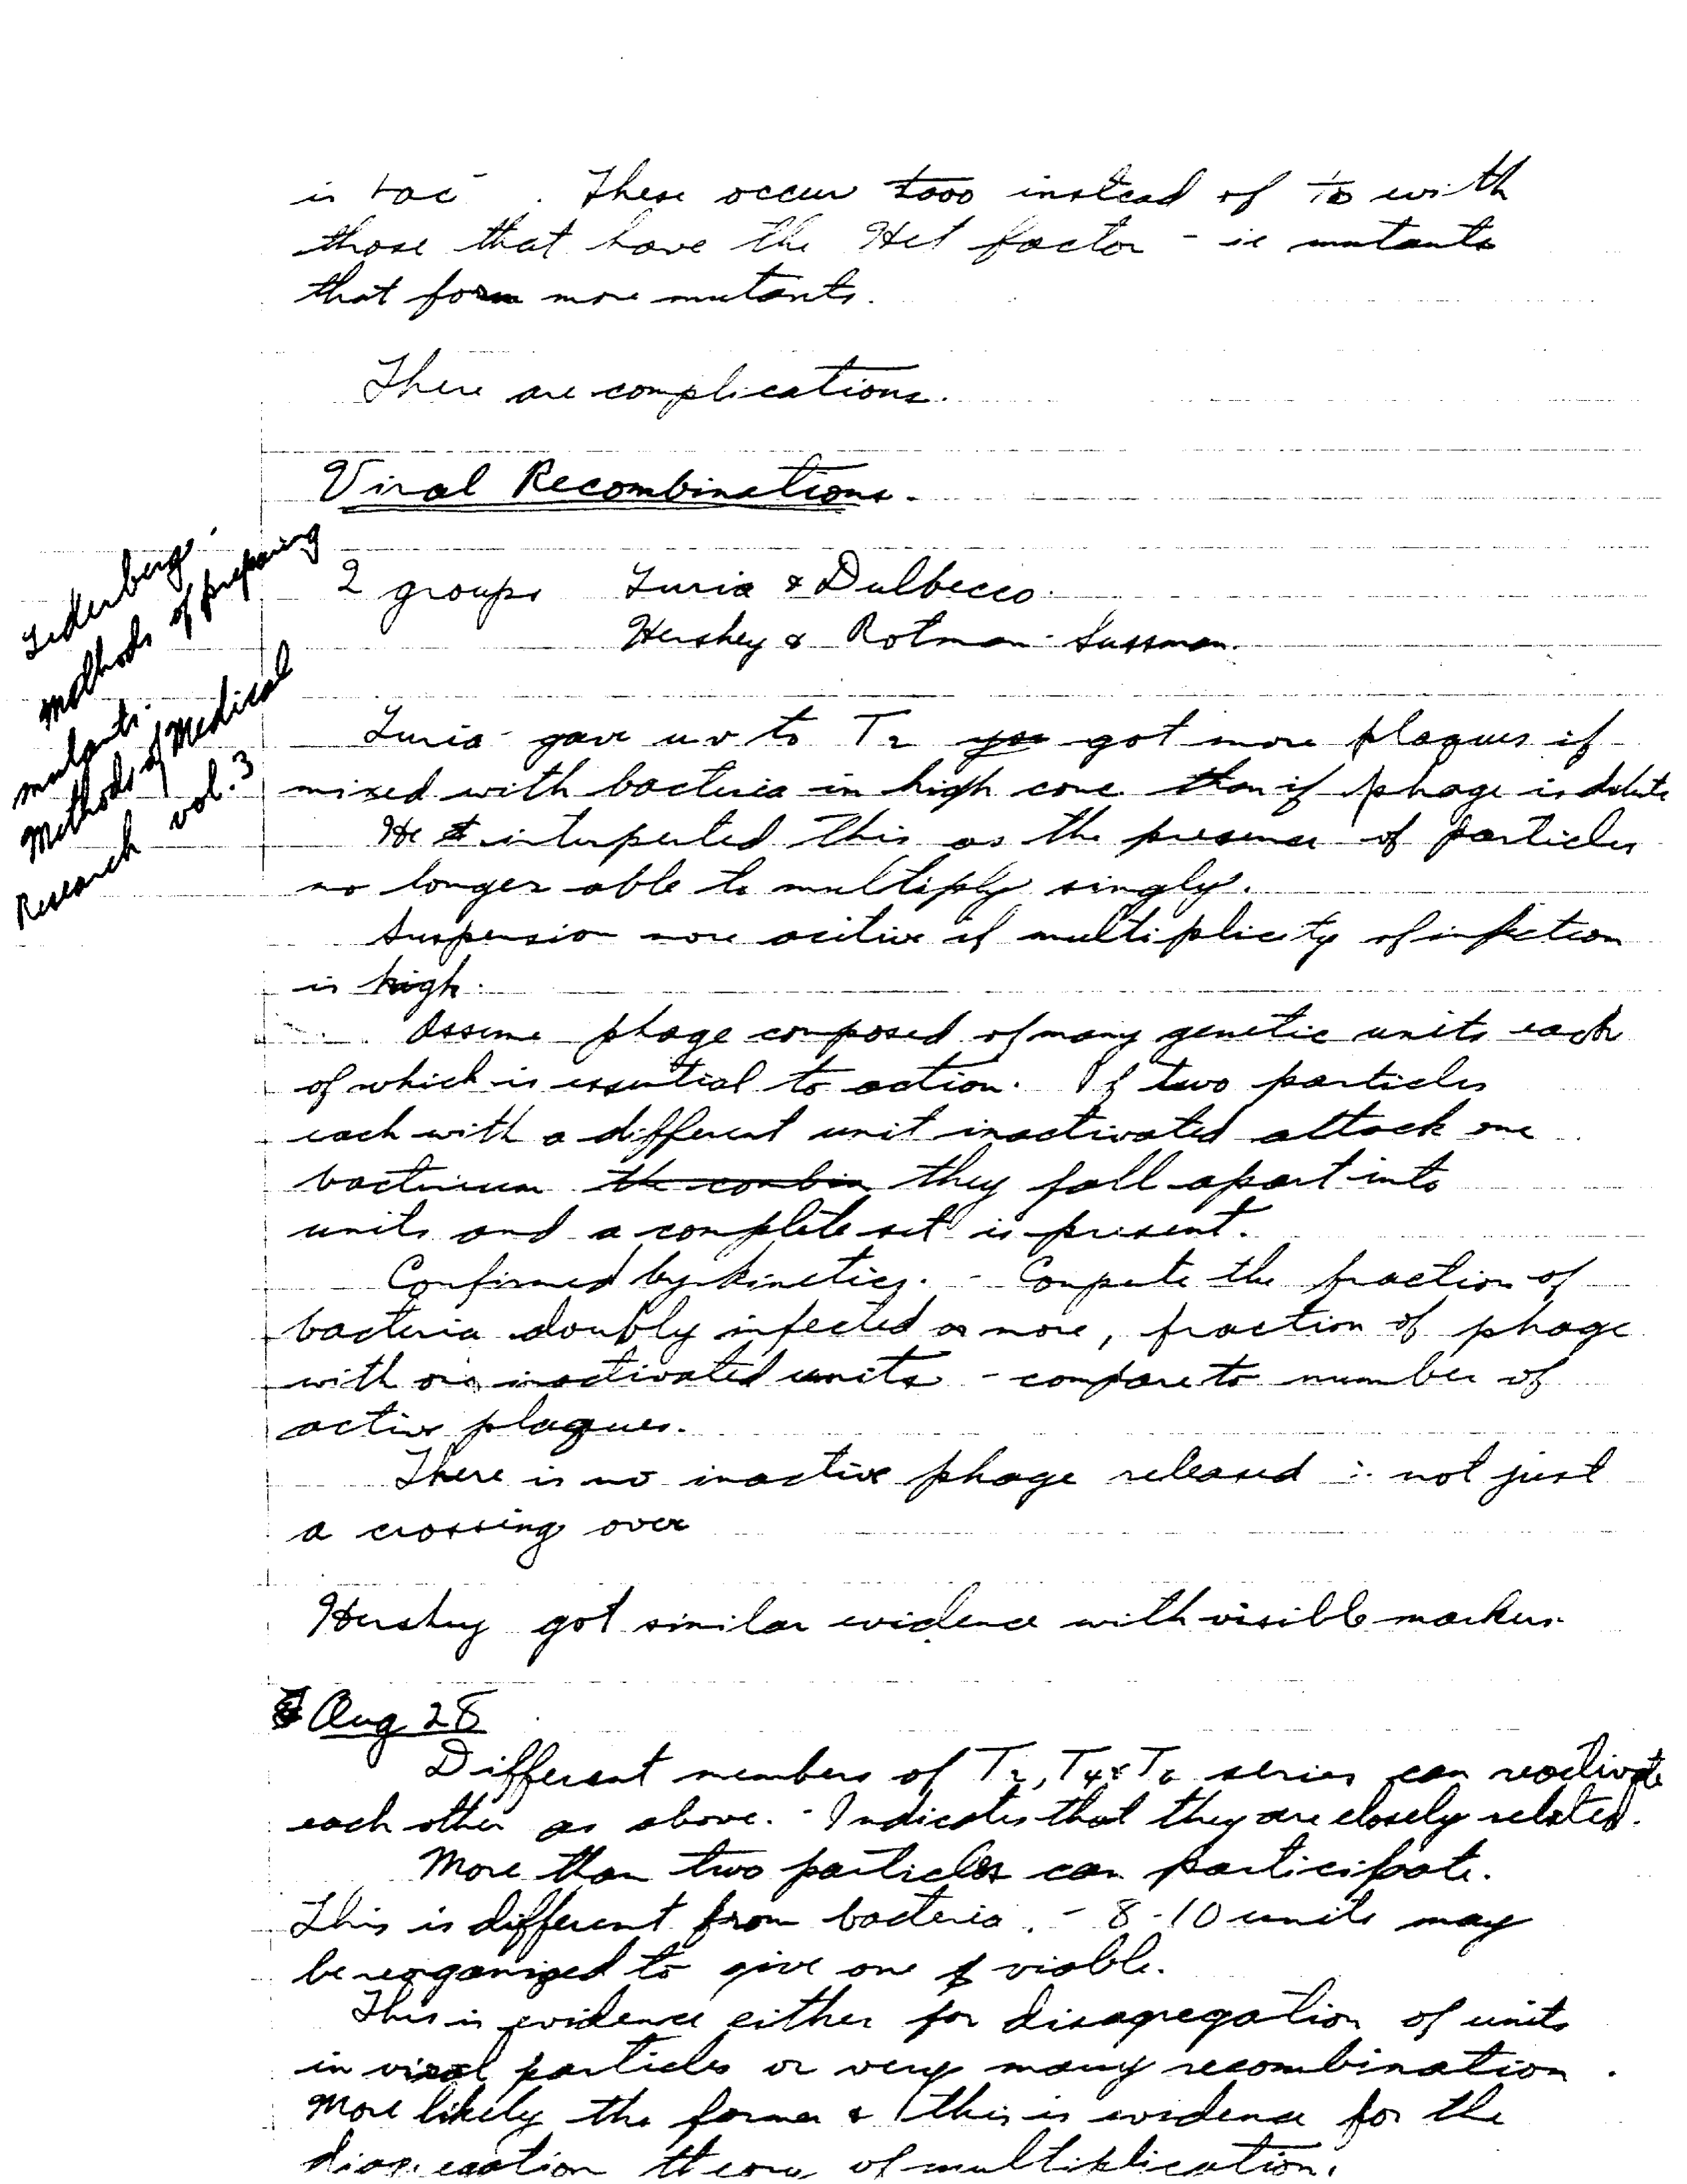 is Lac⁻. These occur 1/1000 instead of 1/10 with
those that have the Het factor - ie mutants
that form more mutants.
There are complications.
Viral Recombinations.
Lederberg:
methods of preparing
mutants.
Methods of Medical
Research vol. 3
2 groups Luria & Dulbecco.
Hershey & Rotman - Sussman.
Luria - gave uv to T2 got more plaques if
mixed with bacteria in high conc. than if phage is dilute
He interpeted this as the presence of particles
no longer able to multiply singly.
Suspension more acitive if multiplicity of infection
is high.
Assume phage composed of many genetic units each
of which is essential to action. If two particles
each with a different unit inactivated attack one
bacterium the combin they fall apart into
units and a complete set is present.
Confirmed by kinetics. - Compute the fraction of
bacteria doubly infected or more, fraction of phage
with inactivated units - compare to number of
active plaques.
There is no inactive phage released ∴ not just
a crossing over
Hershey got similar evidence with visible markers.
Aug 28
Different members of T2, T4 & T6 series can reactivate
each other as above. - Indicates that they are closely related.
More than two particles can participate.
This is different from bacteria. - 8-10 units may
be reorganized to give one viable.
This is evidence either for disagregation of units
in viral particles or very many recombination.
More likely the former & this is evidence for the
theory of multiplication.